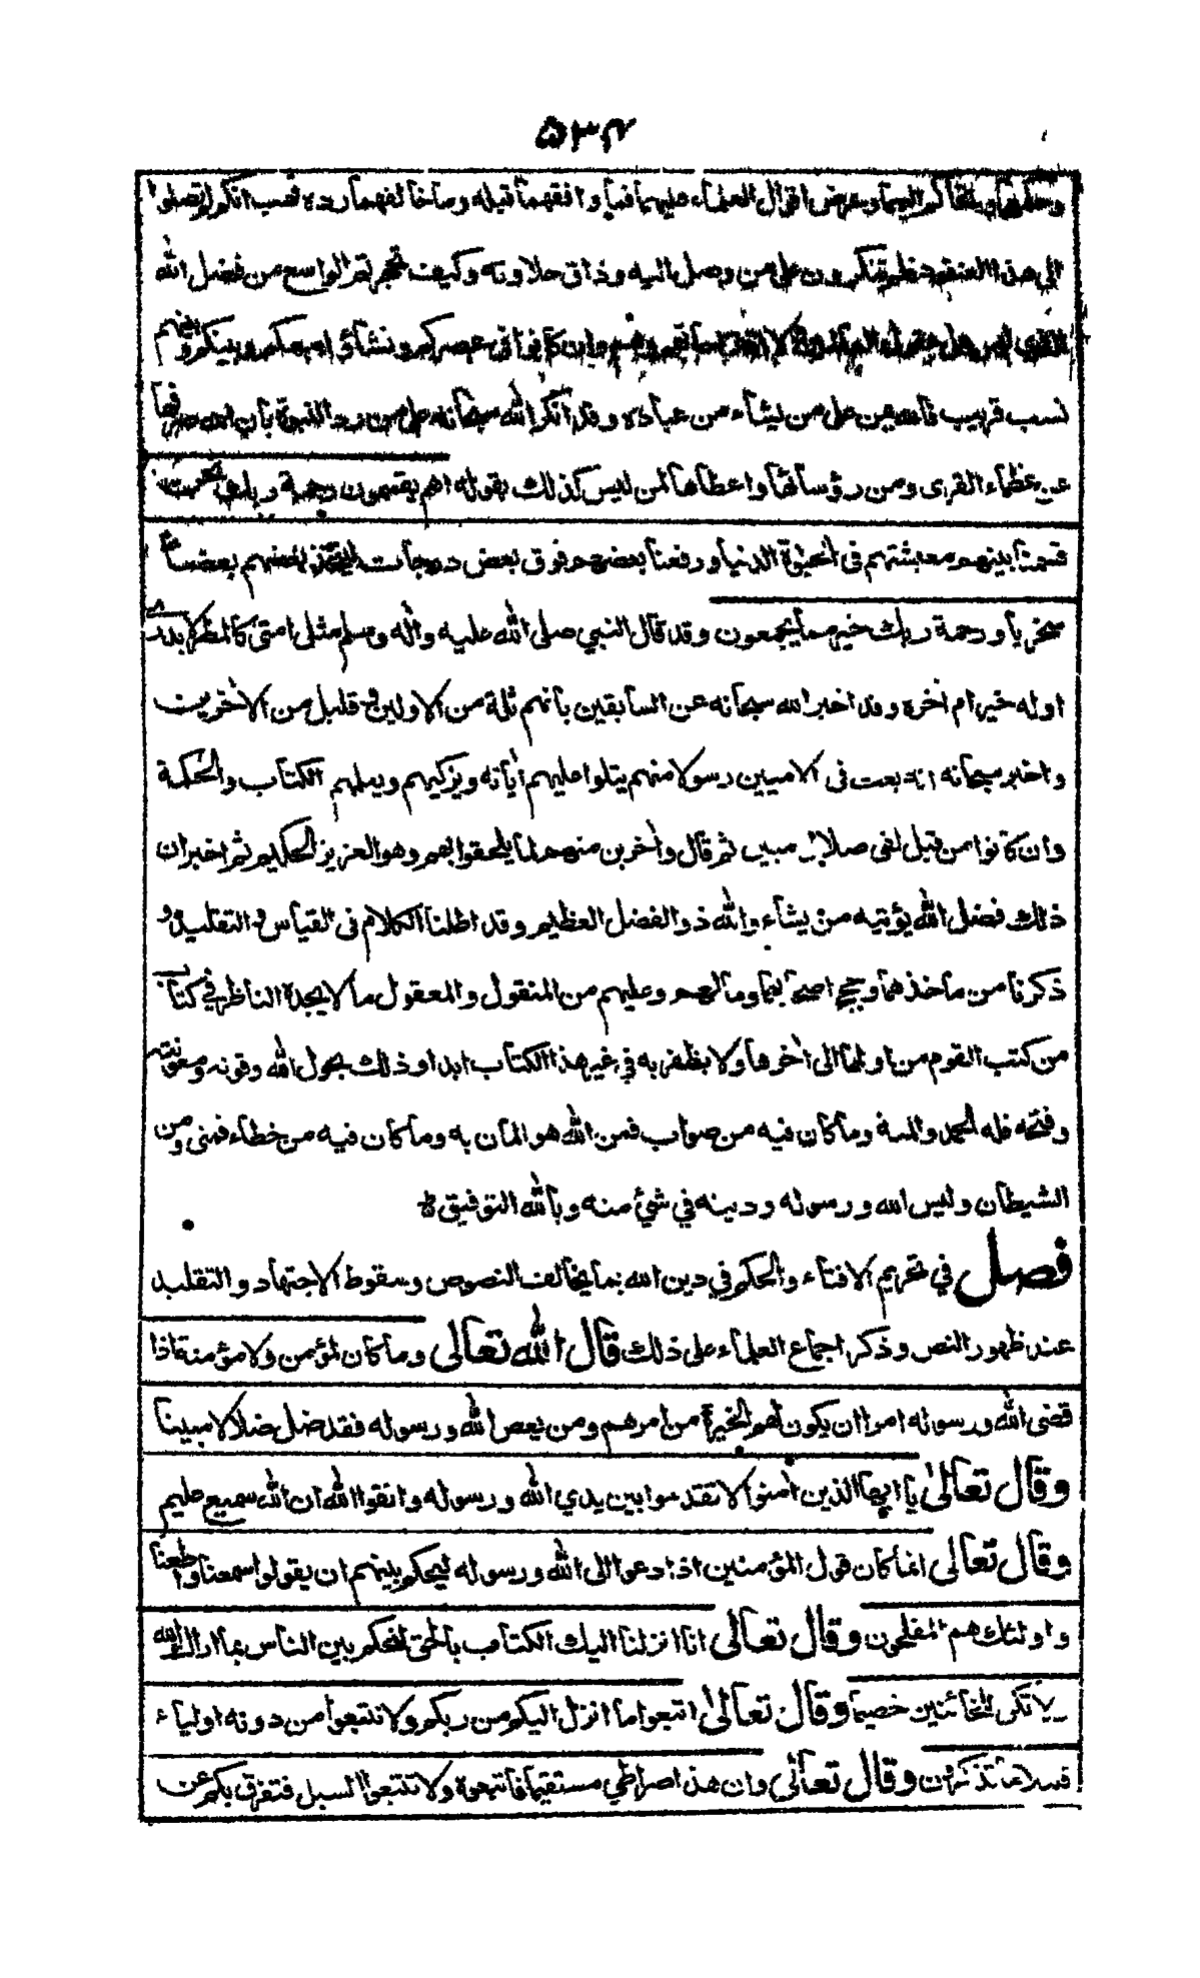 ۵۳۴
اقوال العلماء عليهما فما وافقهما قبله وما خالفهما رده فهب انكم لم تصلوا
الى هذا فلم تنكرون على من وصل اليه وذاق حلاوته وكيف تحجرتم الواسع من فضل الله
وان كانوا فى عصركم ونشأوا معكم وبينكم وبينهم
نسب قريب فالله يمن على من يشاء من عباده وقد انكر الله سبحانه على من رد النبوة بان الله صرفها
عن عظماء القرى ومن رؤسائها واعطاها لمن ليس كذلك بقوله اهم يقسمون رحمة ربك نحن
قسمنا بينهم معيشتهم فى الحيوة الدنيا ورفعنا بعضهم فوق بعض درجات ليتخذ بعضهم بعضا
سخريا ورحمة ربك خير مما يجمعون وقد قال النبي صلى الله عليه واله وسلم مثل امتى كالمطر لا يدرى
اوله خير ام اخره وقد اخبر الله سبحانه عن السابقين بانهم ثلة من الاولين وقليل من الاخرين
واخبر سبحانه انه بعث فى الاميين رسولا منهم يتلوا عليهم أياته ويزكيهم ويعلمهم الكتاب والحكمة
وان كانوا من قبل لفى ضلال مبين ثم قال وأخرين منهم لما يلحقوا بهم وهو العزيز الحكيم ثم اخبر ان
ذلك فضل الله يؤتيه من يشاء والله ذو الفضل العظيم وقد اطلنا الكلام فى القياس والتقليد و
ذكرنا من مأخذهما وحجج اصحابهما وما لهم وعليهم من المنقول والمعقول ما لا يجده الناظر في كتاب
من كتب القوم من اولها الى أخرها ولا يظفر به في غير هذا الكتاب ابدا وذلك بحول الله وقوته ومعونته
وفتحه فله الحمد والمنة وما كان فيه من صواب فمن الله هو المان به وما كان فيه من خطاء فمنى ومن
الشيطان وليس الله ورسوله ودينه في شئ منه وبالله التوفيق ط
فصل في تحريم الافتاء والحكم في دين الله بما يخالف النصوص وسقوط الاجتهاد والتقليد
عند ظهور النص وذكر اجماع العلماء على ذلك قال الله تعالى وما كان لمؤمن ولا مؤمنة اذا
قضى الله ورسوله امرا ان يكون لهم الخيرة من امرهم ومن يعص الله ورسوله فقد ضل ضلالا مبينا
وقال تعالىٰ يا ايها الذين أمنوا لا تقدموا بين يدي الله ورسوله واتقوا الله ان الله سميع عليم
وقال تعالى انما كان قول المؤمنين اذا دعوا الى الله ورسوله ليحكم بينهم ان يقولوا سمعنا واطعنا
واولئك هم المفلحون وقال تعالى انا انزلنا اليك الكتاب بالحق لتحكم بين الناس بما اراك الله
ولا تكن للخائنين خصيما وقال تعالىٰ اتبعوا ما انزل اليكم من ربكم ولا تتبعوا من دونه اولياء
قليلا ما تذكرون وقال تعالى وان هذا صراطي مستقيما فاتبعوه ولا تتبعوا السبل فتفرق بكم عن